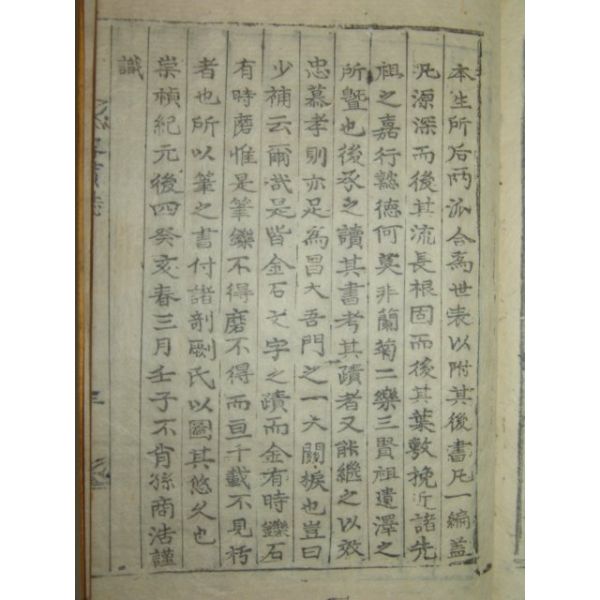 本生所后兩派合爲世表以附其後書凡一編盖
凡源深而後其流長根固而後其葉敷挽近諸先
祖之嘉行懿德何莫非蘭菊二樂三賢祖遺澤之
所曁也後承之讀其書考其蹟者又能繼之以效
忠慕孝則亦足爲昌大吾門之一大關捩也豈曰
少補云爾哉是皆金石文字之蹟而金有時鑠石
有時磨惟是筆鑠不得磨不得而亘千載不見朽
者也所以筆之書付諸剞劂氏以圖其悠久也
崇禎紀元後四癸亥春三月壬子不肖孫商浩謹
識